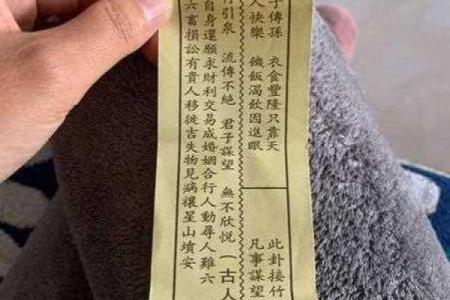 子傳孫 衣食豐隆只靠天
人快樂 饑飯渴飲困進眠
此卦接竹
凡事謀望
引泉 流傳不絕 君子謀望 無不欣悅(古人
自身還願求財利交易成婚姻合行人動尋人難六
六畜損訟有貴人移徙吉失物見病禳星山墳安